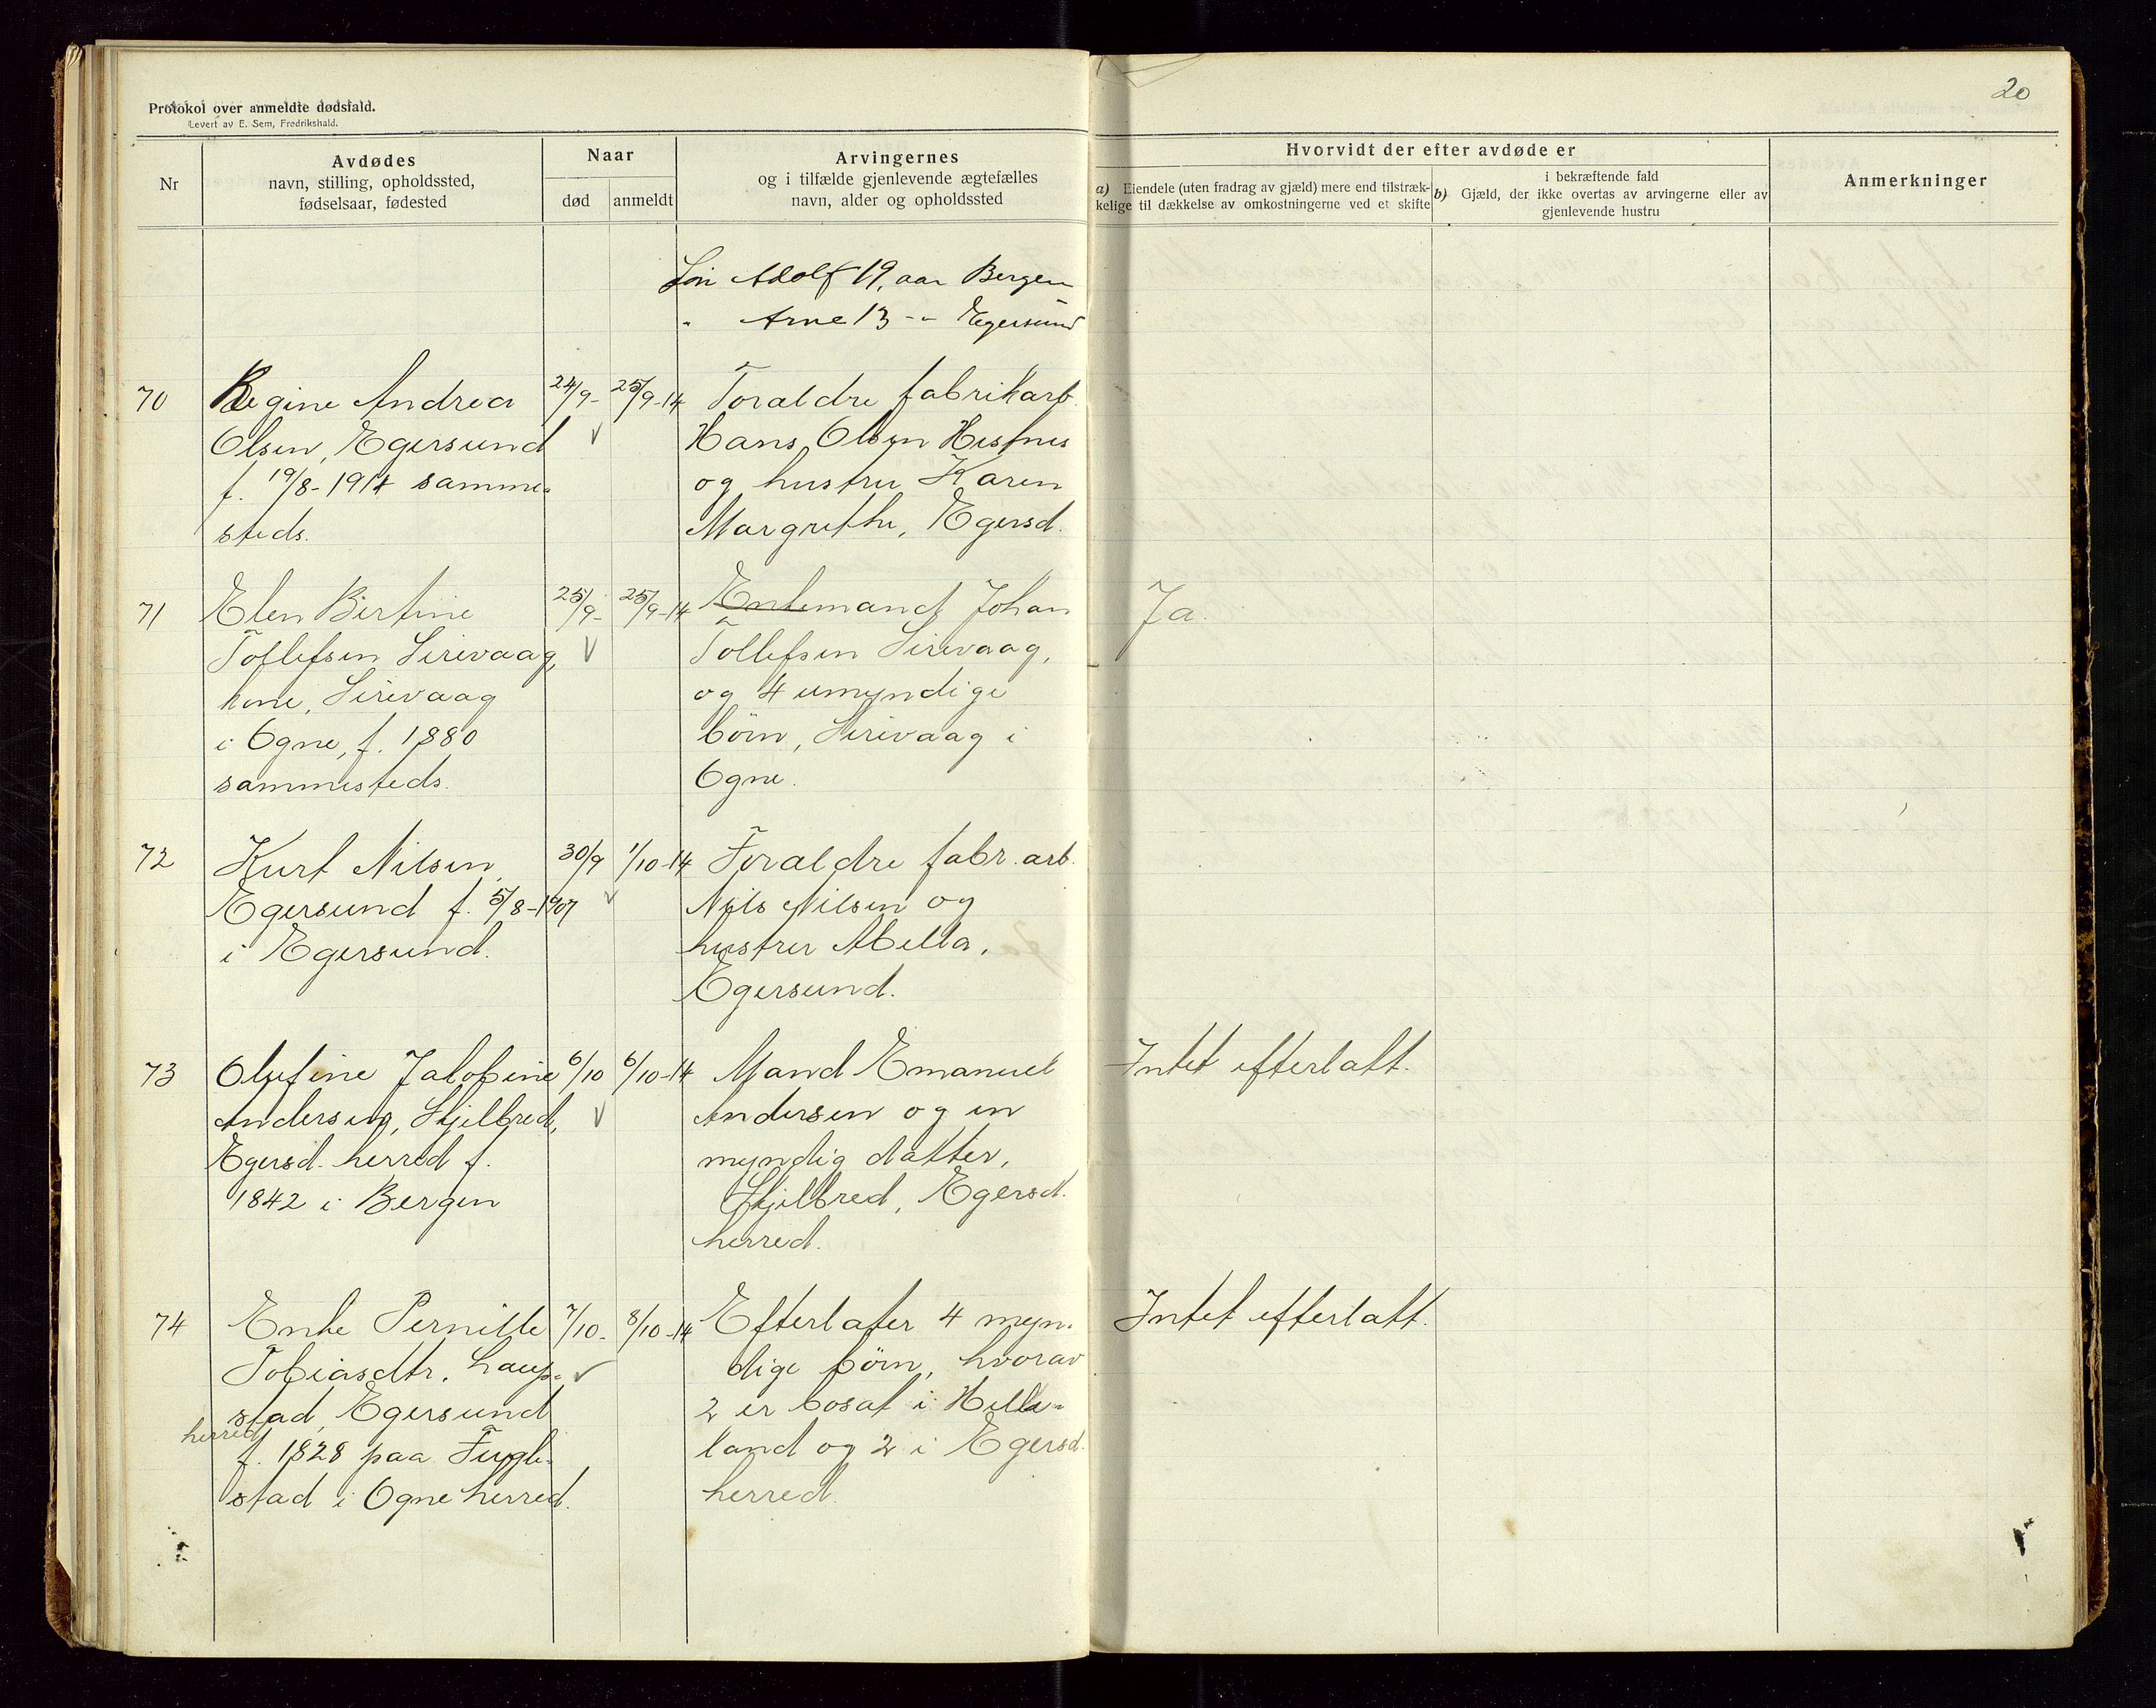 20
Protokol over anmeldte dødsfald.
Levert av E. Sem, Fredrikshald.
Nr
Avdødes
navn, stilling, opholdssted,
fødselsaar, fødested
Naar
død
anmeldt
Arvingernes
og i tilfælde gjenlevende ægtefælles
navn, alder og opholdssted
Hvorvidt der efter avdøde er
a) Eiendele (uten fradrag av gjæld) mere end tilstræk-
kelige til dækkelse av omkostningerne ved et skifte
i bekræftende fald
b) Gjæld, der ikke overtas av arvingerne eller av
gjenlevende hustru
Anmerkninger
Søn Adolf 19, aar Bergen
" Arne 13 -"- Egersund
70
Regine Andrea
Olsen, Egersund
f. 19/8-1914 samme-
steds.
24/9-
25/9-14
Foraldre fabrikarb.
Hans Olsen Hestnes
og hustru Karen
Margrethe, Egersd.
71
Elen Bertine
Tollefsen Sirevaag,
kone, Sirevaag
i Ogne, f. 1880
sammesteds.
25/9-
25/9-14
Enkemand, Johan
Tollefsen Sirevaag,
og 4 umyndige
børn, Sirevaag i
Ogne.
Ja.
72
Kurt Nilsen,
Egersund f. 5/8-1907
i Egersund.
30/9
1/10-14
Foraldre fabr. arb.
Nils Nilsen og
hustru Abella,
Egersund.
73
Olufine Jakobine
Andersen, Skjelbred,
Egersd. herred f.
1842 i Bergen
6/10
6/10-14
Mand Emanuel
Andersen og en
myndig datter,
Skjelbred, Egersd.
herred.
Intet efterlatt.
74
Enke Pernille
Tobiasdtr. Laup-
stad, Egersund
herred
f. 1828 paa Fugle-
stad i Ogne herred.
7/10-
8/10-14
Efterlater 4 myn-
dige børn, hvorav
2 er bosat i Helle-
land og 2 i Egersd.
herred.
Intet efterlatt.